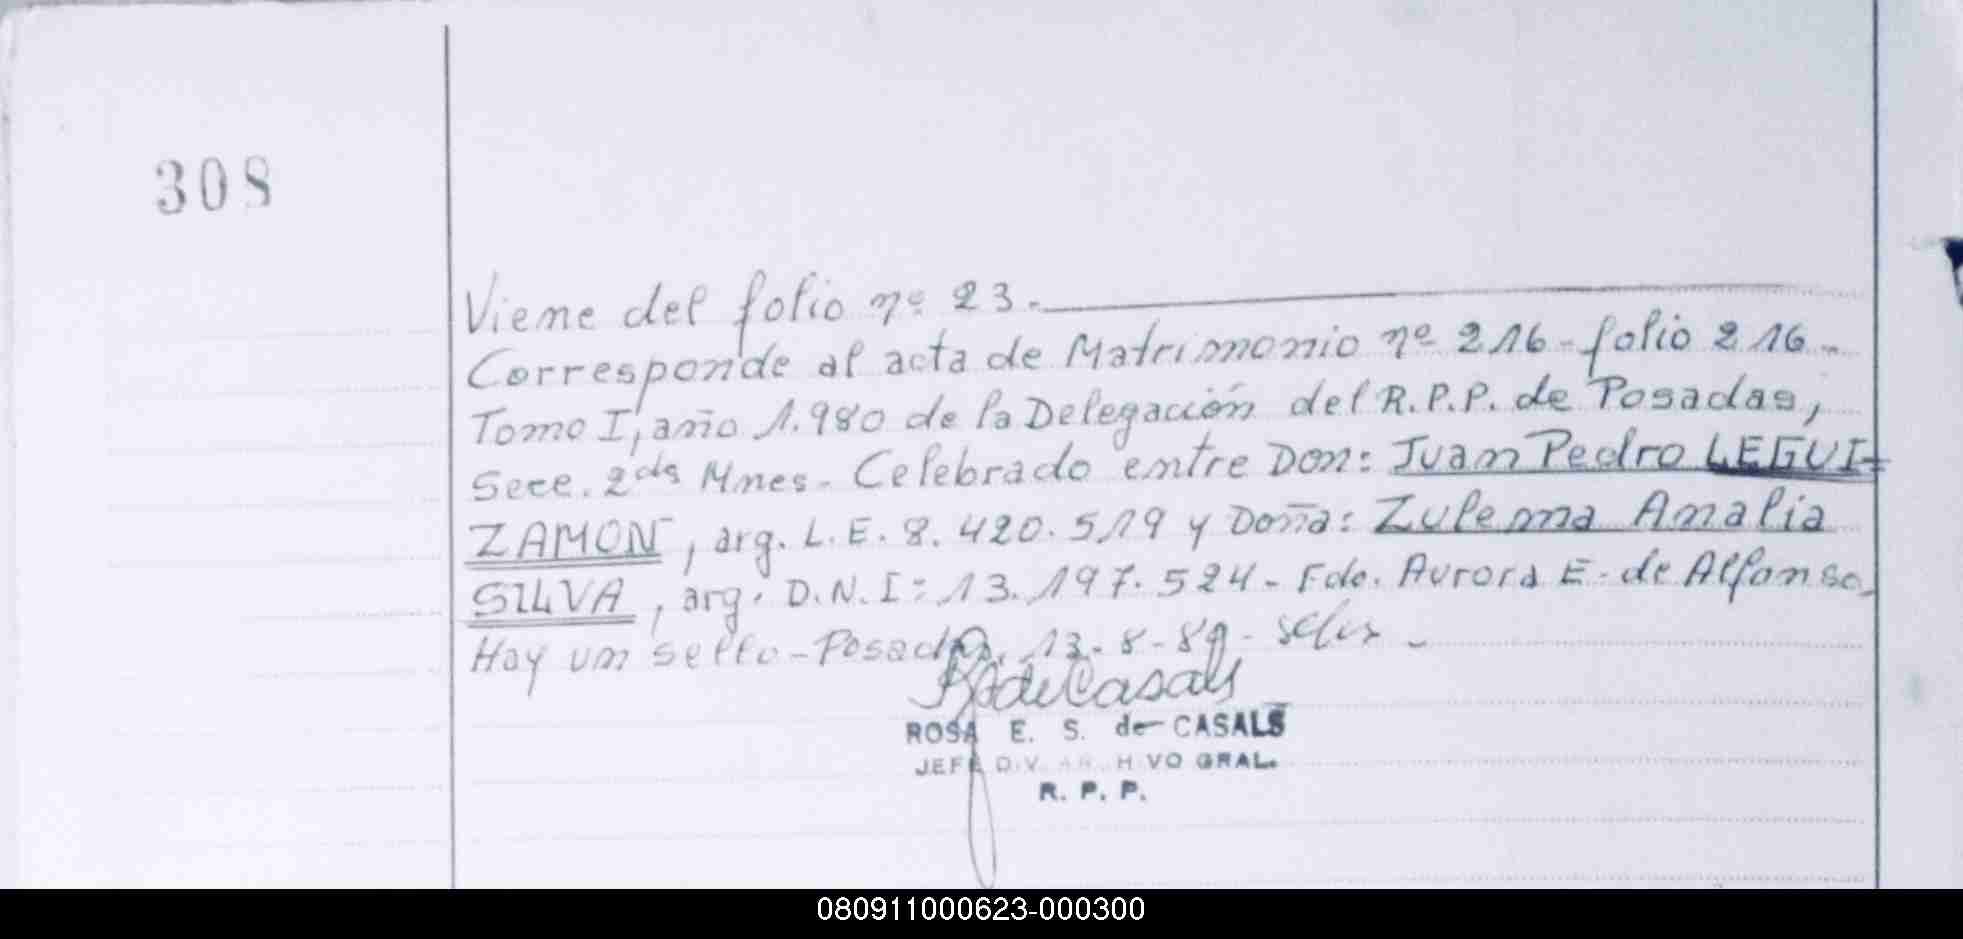 308
Viene del folio nº 23.-
Corresponde al acta de Matrimonio nº 216 - folio 216 -
Tomo I, año 1.980 de la Delegación del R.P.P. de Posadas,
Secc. 2da Mnes - Celebrado entre Don: Juan Pedro LEGUI-
ZAMON, arg. L.E. 8.420.519 y Doña: Zulema Amalia
SILVA, arg. D.N.I: 13.197.524 - Fdo. Aurora E. de Alfonso,
Hay un sello - Posadas, 13-8-89 -
ROSA E. S. de CASALS
JEFE DIV. ARCHIVO GRAL.
R. P. P.
080911000623-000300